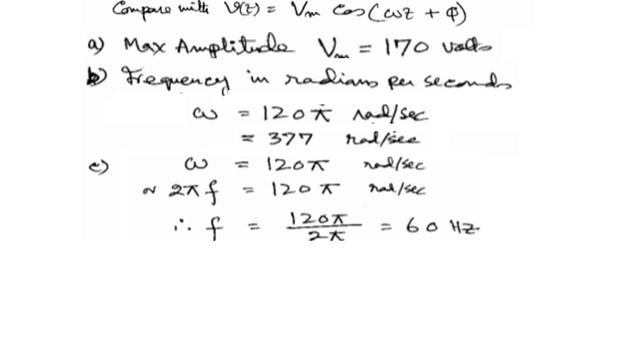 Compare with V(t) = Vm Cos(ωt + Φ)
a) Max Amplitude Vm = 170 volts
b) Frequency in radians per seconds
ω = 120π rad/sec
= 377 rad/sec
c) ω = 120π rad/sec
∾ 2πf = 120π rad/sec
∴ f = 120π/2π = 60 Hz